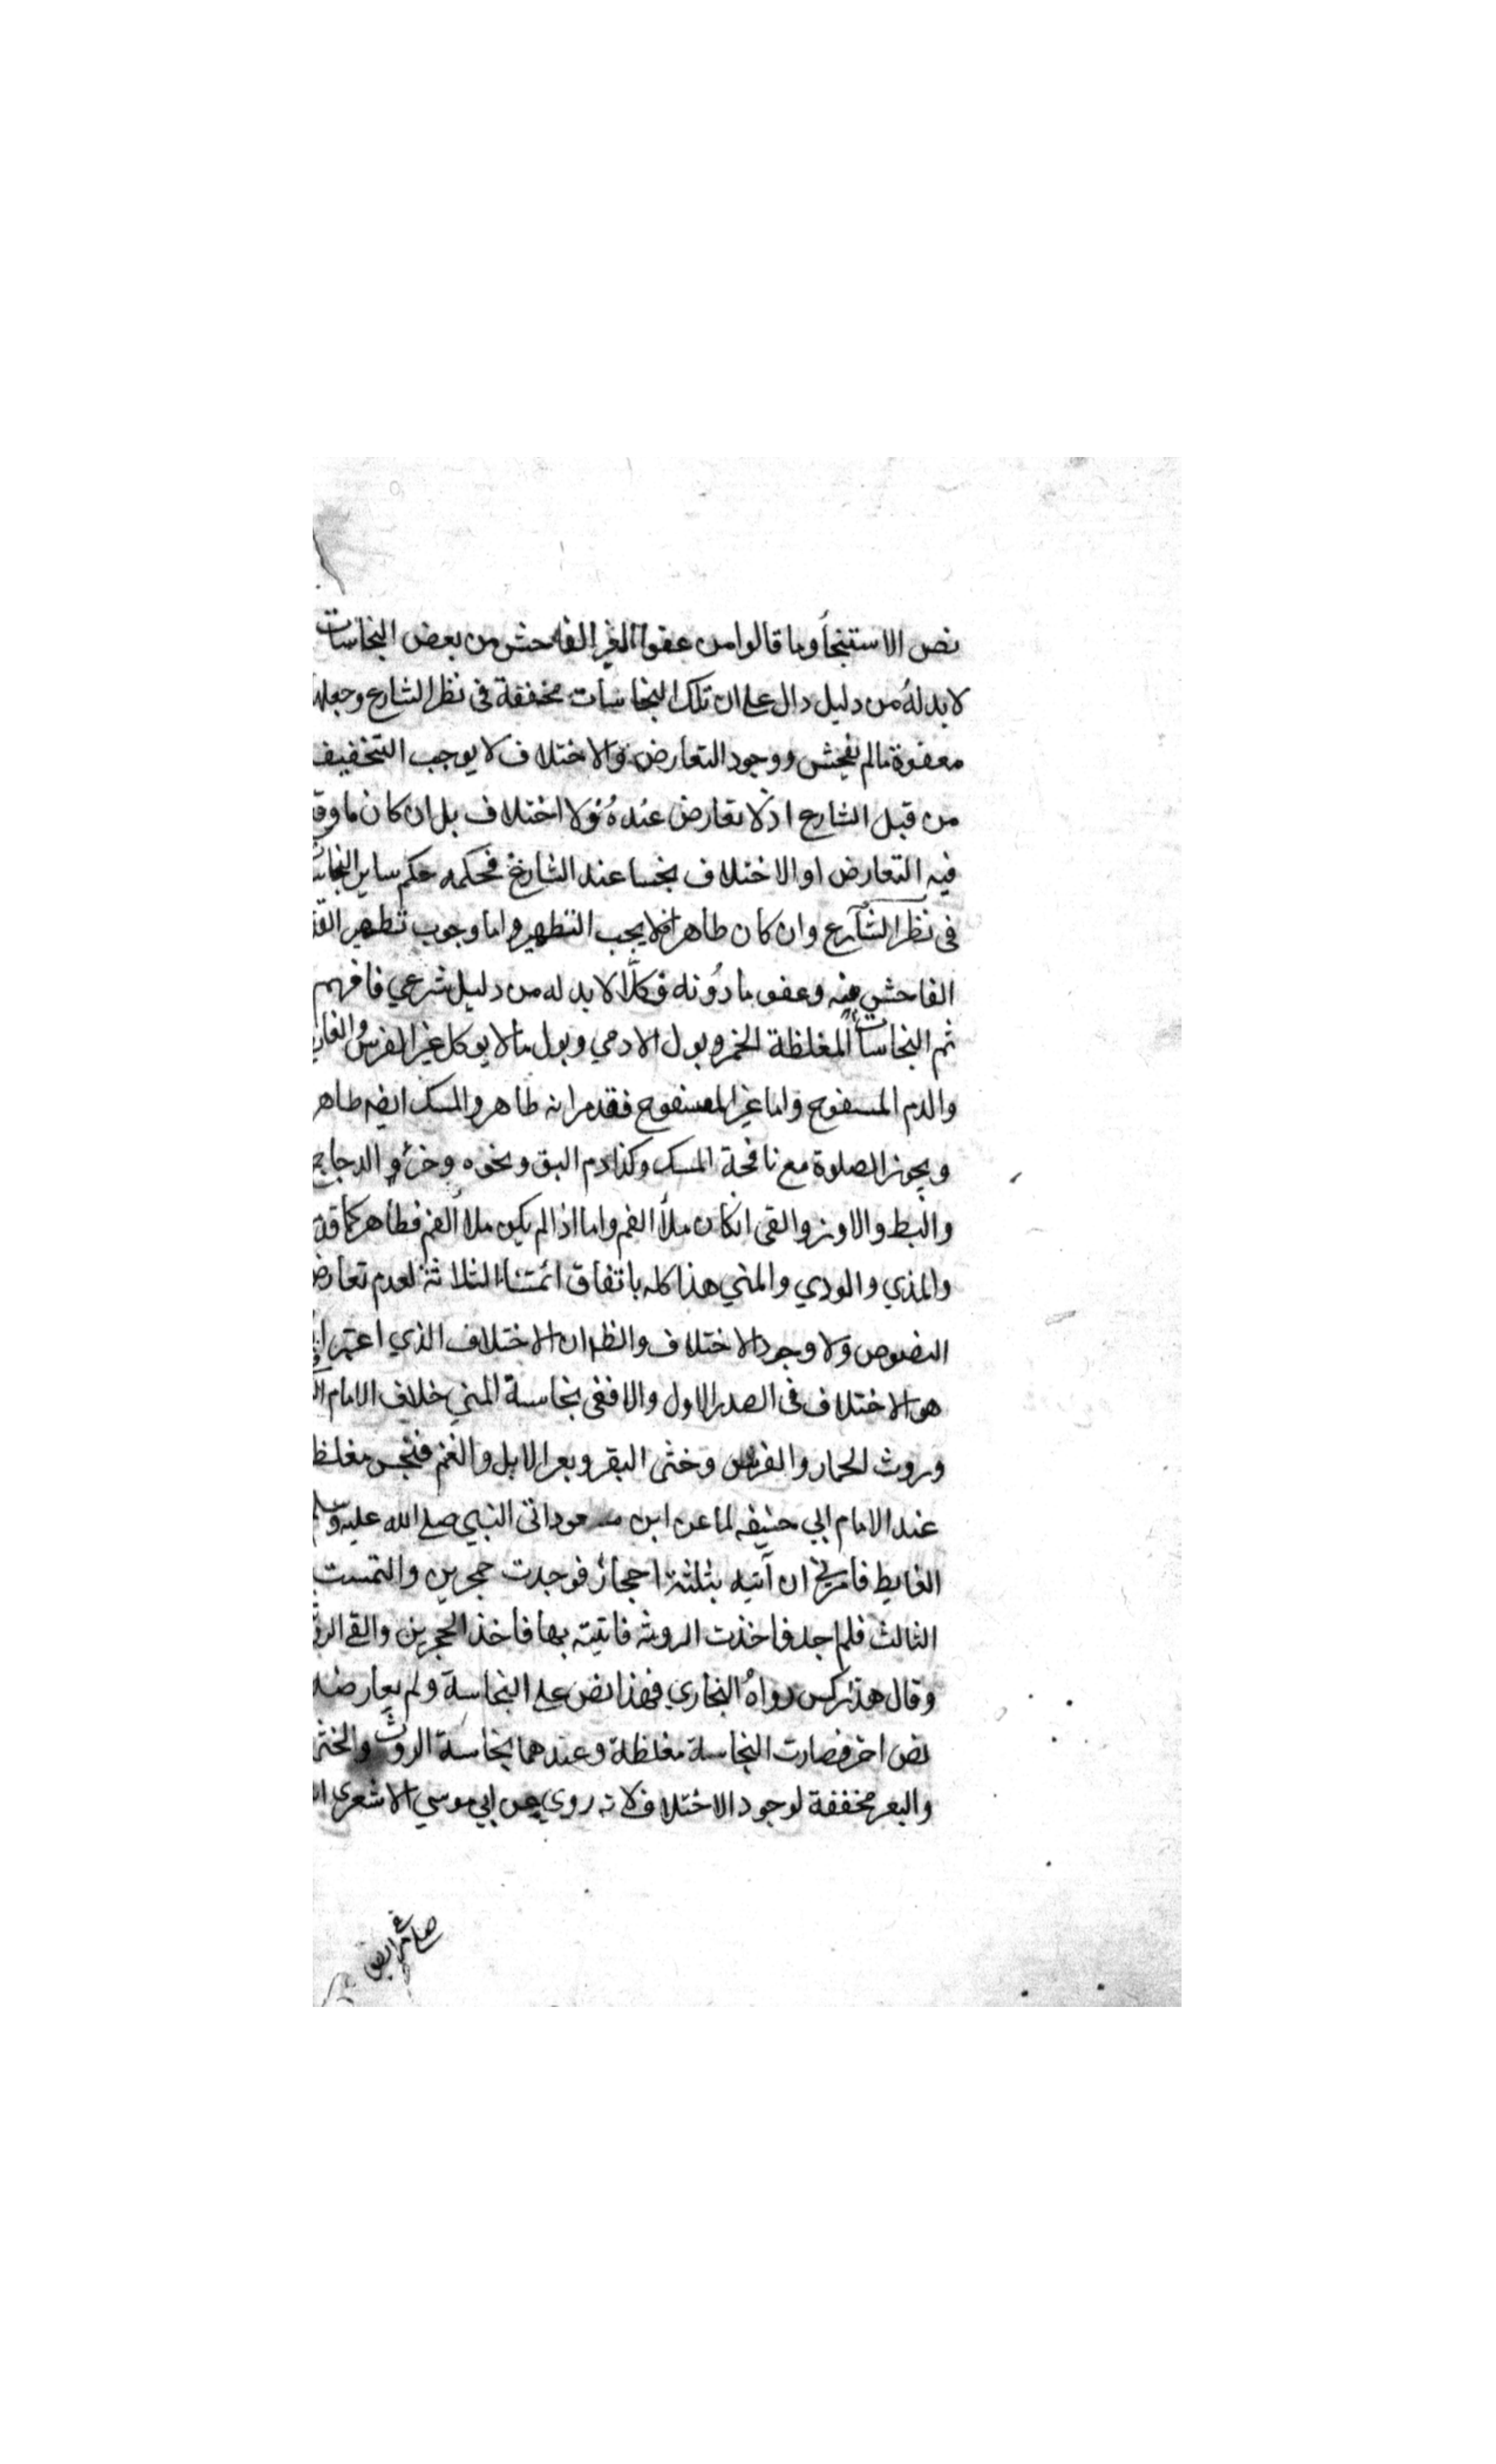 نص الاستنجأ وما قالوا من عفو الغير الفاحش من بعض النجاسات
لا بد لهُ من دليل دال على ان تلك النجاسات مخففة في نظر الشارع وجعلها
معفوة مالم يفحش ووجود التعارض والاختلاف لا يوجب التخفيف
من قبل الشارع اذ لا تعارض عندهُ ولا اختلاف بل ان كان ما وقع
فيه التعارض او الاختلاف نجسا عند الشارع فحكمه حكم ساير
في نظر الشارع وان كان طاهرا فلا يجب التطهير واما وجوب تطهير
الفاحش منه وعفو ما دونه فكلا لا بد له من دليل شرعي فافهم
ثم النجاسات المغلظة الخمر وبول الادمي وبول ما لا يوكل غير الفرس
والدم المسفوح واما غير المسفوح فقد مر انه طاهر والمسك ايضه طاهر
ويجوز الصلوة مع نافحة المسك وكذا دم البق ونحوه وخرؤ الدجاج
والبط والاوز والقى انكان ملأ الفم واما اذا لم يكن ملأ الفم فطاهر كما
والمذي والودي والمني هذا كله باتفاق ائمتنا الثلاثة لعدم تعارض
النصوص ولا وجود الاختلاف والظ ان الاختلاف الذي اعتبر
هو الاختلاف في الصدر الاول والا ففي نجاسة المني خلاف الامام
وروث الحمار والفرس وخثى البقر وبعر الابل والغنم فنجس مغلظ
عند الامام ابي حنيفه لما عن ابن مسعود اتى النبي صلى الله عليه وسلم
الغايط فامرني ان آتيه بثلثة احجار فوجدت حجرين والتمست
الثالث فلم اجد فاخذت الروثه فاتيته بها فاخذ الحجرين والقى
وقال هذا ركس رواهُ البخاري فهذا نص على النجاسة ولم يعارضه
نص اخر فصارت النجاسة مغلظة وعندهما نجاسة الروث والخثى
والبعر مخففة لوجود الاختلاف لانه روي عن ابي موسي الاشعري